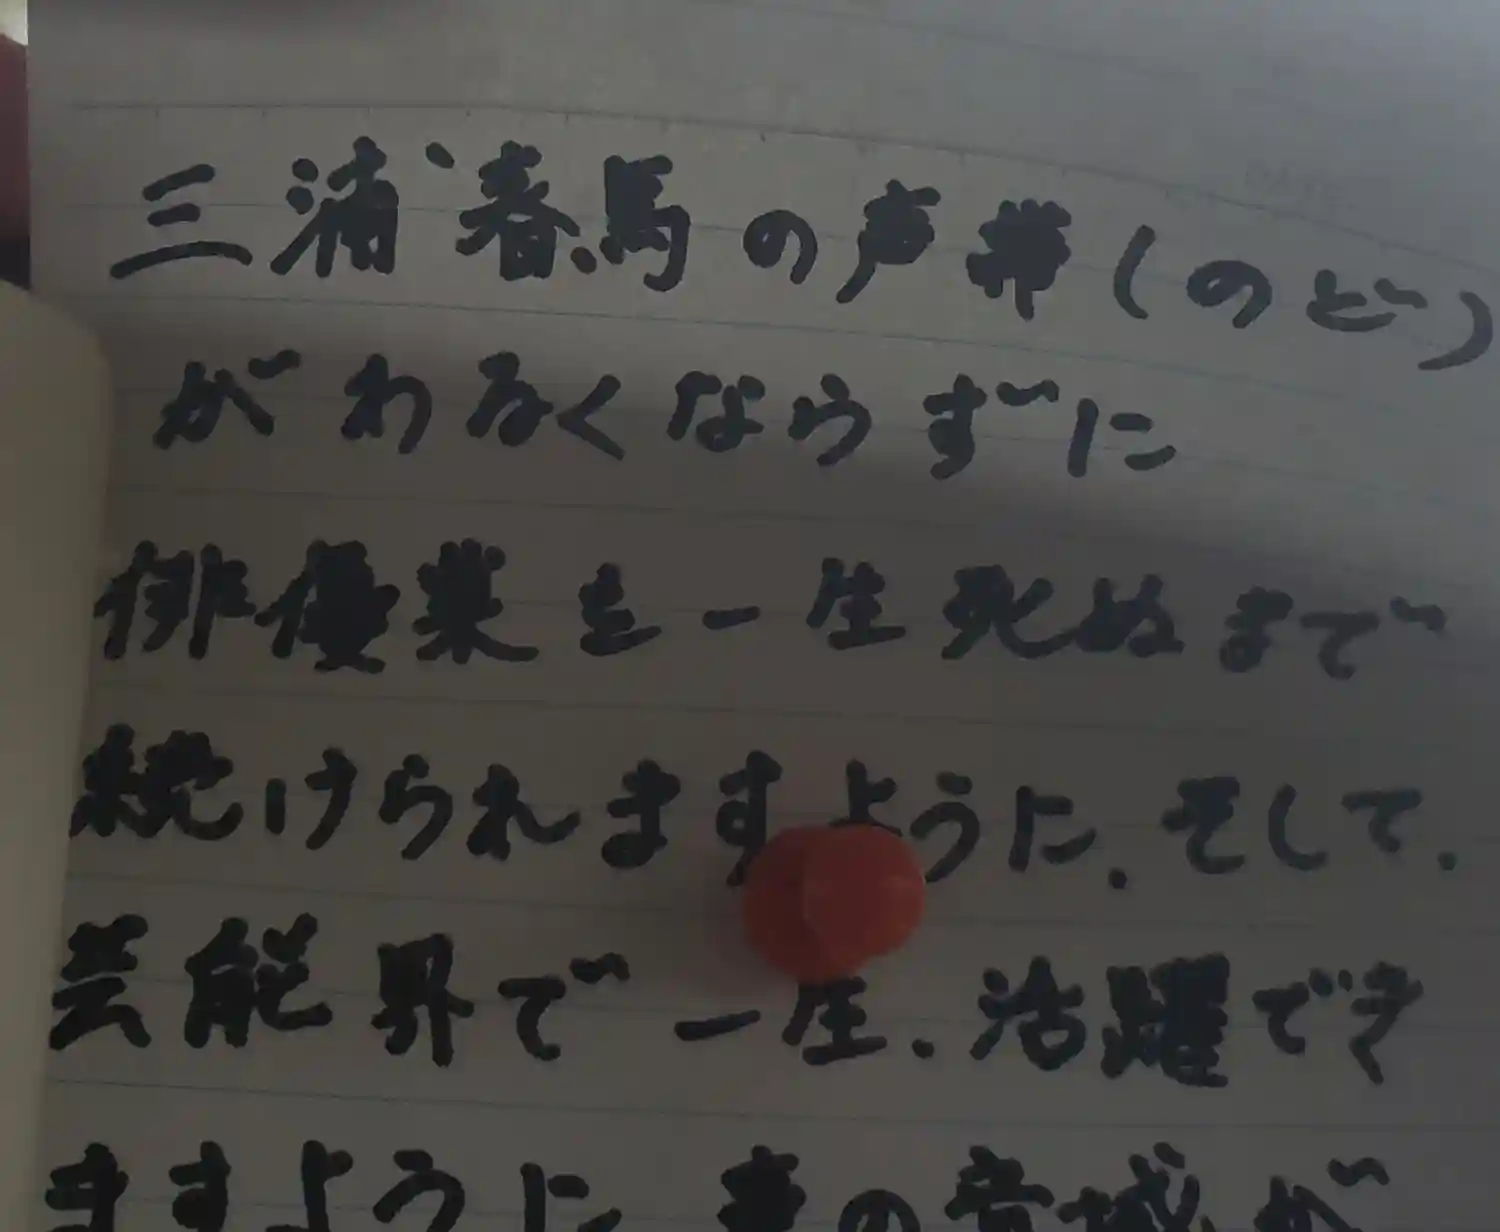 三浦春馬の声帯(のど)
がわるくならずに
俳優業を一生死ぬまで
続けられますように.そして.
芸能界で一生.活躍でき
ますように 声の音域が